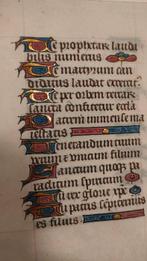 Te prophetar laudа
bilis numerus
Te martyrum can
didatus laudat exercit
Te per orbem terrarum
sancta confitetur eccla
Patrem immense ma
iestatis
Venerandum tuum
verum et unicum filium
Sanctum quoq pa
raclitum spiritum
Tu rex glorie xpe
Tu patris sempiternus
es filius